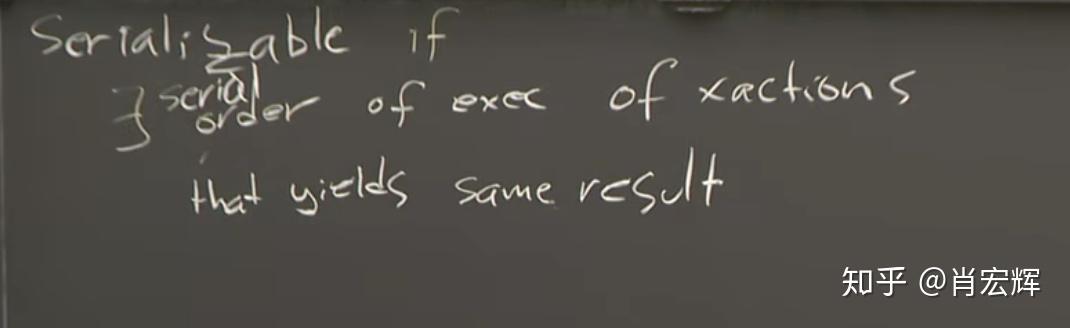 Serializable if
∃ serial order of exec of xactions
that yields same result
知乎 @肖宏辉